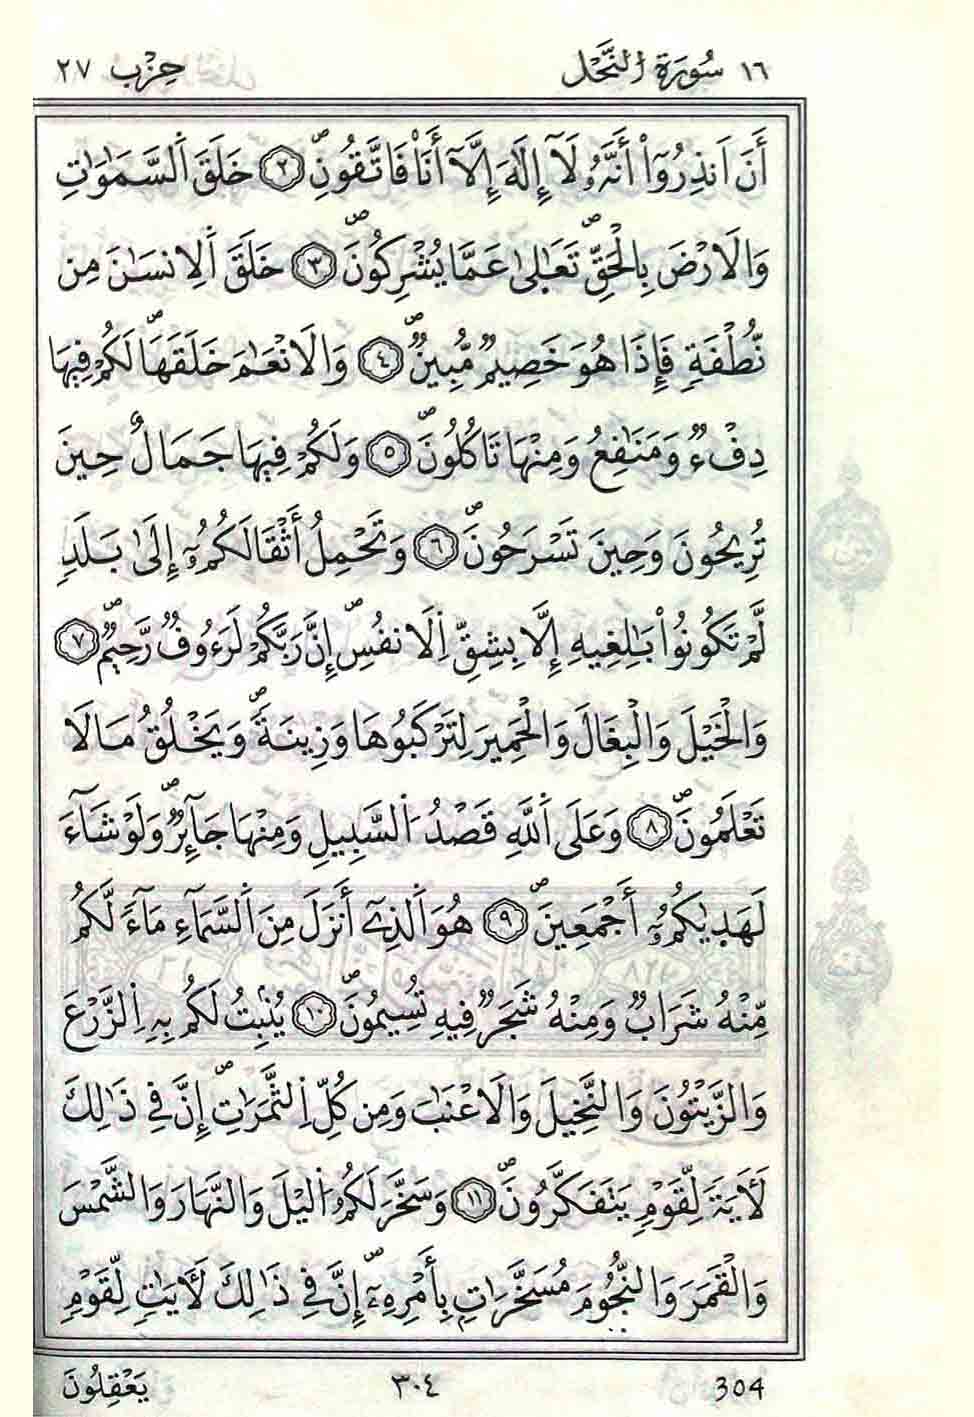 ١٦ سُورَةُ النَّحْلِ حِزْب ٢٧
أَنَ اَنذِرُوٓاْ أَنَّهُۥ لَآ إِلَٰهَ إِلَّآ أَنَاْ فَاتَّقُونِۖ ۝٢ خَلَقَ اَ۬لسَّمَٰوَٰتِ
وَالَارْضَ بِالْحَقِّۖ تَعَٰلَىٰ عَمَّا يُشْرِكُونَۖ ۝٣ خَلَقَ اَ۬لِانسَٰنَ مِن
نُّطْفَةٖ فَإِذَا هُوَ خَصِيمٞ مُّبِينٞۖ ۝٤ وَالَانْعَٰمَ خَلَقَهَاۖ لَكُمْ فِيهَا
دِفْءٞ وَمَنَٰفِعُ وَمِنْهَا تَاكُلُونَۖ ۝٥ وَلَكُمْ فِيهَا جَمَالٌ حِينَ
تُرِيحُونَ وَحِينَ تَسْرَحُونَۖ ۝٦ وَتَحْمِلُ أَثْقَالَكُمُۥٓ إِلَىٰ بَلَدٖ
لَّمْ تَكُونُواْ بَٰلِغِيهِ إِلَّا بِشِقِّ اِ۬لَانفُسِۖ إِنَّ رَبَّكُمْ لَرَءُوفٞ رَّحِيمٞۖ ۝٧
وَالْخَيْلَ وَالْبِغَالَ وَالْحَمِيرَ لِتَرْكَبُوهَا وَزِينَةٗۖ وَيَخْلُقُ مَا لَا
تَعْلَمُونَۖ ۝٨ وَعَلَى اَ۬للَّهِ قَصْدُ اُ۬لسَّبِيلِ وَمِنْهَا جَآئِرٞۖ وَلَوْ شَآءَ
لَهَدٜيٰكُمُۥٓ أَجْمَعِينَۖ ۝٩ هُوَ اَ۬لذِےٓ أَنزَلَ مِنَ اَ۬لسَّمَآءِ مَآءٗ لَّكُم
مِّنْهُ شَرَابٞ وَمِنْهُ شَجَرٞ فِيهِ تُسِيمُونَۖ ۝١٠ يُنۢبِتُ لَكُم بِهِ اِ۬لزَّرْعَ
وَالزَّيْتُونَ وَالنَّخِيلَ وَالَاعْنَٰبَ وَمِن كُلِّ اِ۬لثَّمَرَٰتِۖ إِنَّ فِے ذَٰلِكَ
لَأٓيَةٗ لِّقَوْمٖ يَتَفَكَّرُونَۖ ۝١١ وَسَخَّرَ لَكُمُ اُ۬ليْلَ وَالنَّهَارَ وَالشَّمْسَ
وَالْقَمَرَ وَالنُّجُومَ مُسَخَّرَٰتِۢ بِأَمْرِهِۦٓۖ إِنَّ فِے ذَٰلِكَ لَأٓيَٰتٖ لِّقَوْمٖ
304 ٣٠٤ يَعْقِلُونَ